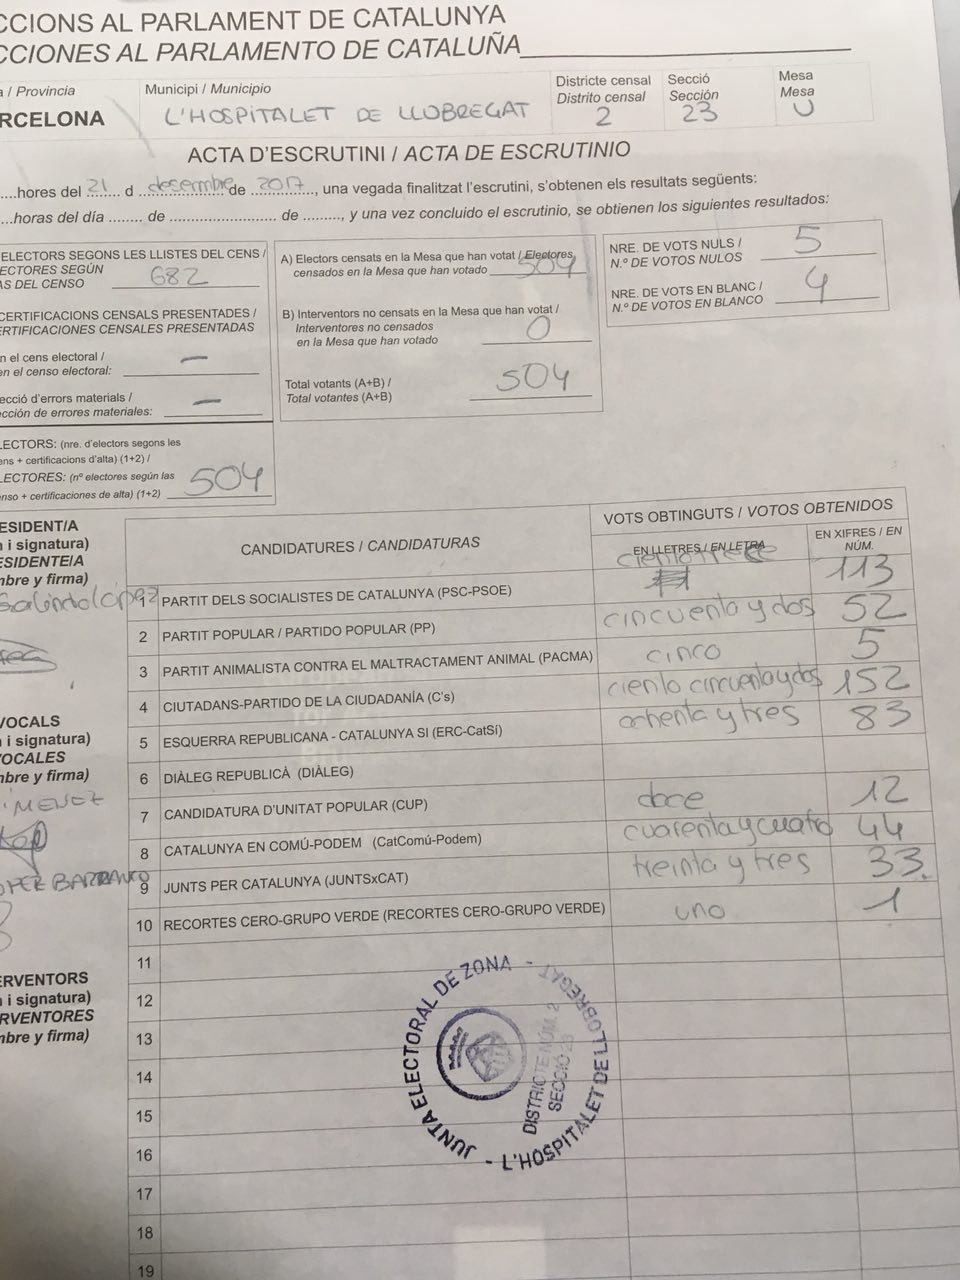 CCIONS AL PARLAMENT DE CATALUNYA
CCIONES AL PARLAMENTO DE CATALUÑA
a / Provincia
RCELONA
Municipi / Municipio
L'HOSPITALET DE LLOBREGAT
Districte censal
Distrito censal
2
Secció
Sección
23
Mesa
Mesa
U
ACTA D'ESCRUTINI / ACTA DE ESCRUTINIO
......hores del 21 d desembre de 2017, una vegada finalitzat l'escrutini, s'obtenen els resultats següents:
......horas del día ........ de ......................... de ........., y una vez concluido el escrutinio, se obtienen los siguientes resultados:
ELECTORS SEGONS LES LLISTES DEL CENS /
ECTORES SEGÚN
AS DEL CENSO 682
CERTIFICACIONS CENSALS PRESENTADES /
ERTIFICACIONES CENSALES PRESENTADAS
n el cens electoral /
en el censo electoral: —
ecció d'errors materials /
cción de errores materiales: —
LECTORS: (nre. d'electors segons les
ens + certificacions d'alta) (1+2) /
LECTORES: (nº electores según las
enso + certificaciones de alta) (1+2) 504
A) Electors censats en la Mesa que han votat / Electores
censados en la Mesa que han votado 504
B) Interventors no censats en la Mesa que han votat /
Interventores no censados
en la Mesa que han votado 0
Total votants (A+B) /
Total votantes (A+B) 504
NRE. DE VOTS NULS /
N.º DE VOTOS NULOS 5
NRE. DE VOTS EN BLANC /
N.º DE VOTOS EN BLANCO 4
ESIDENT/A
n i signatura)
ESIDENTE/A
mbre y firma)
Galindo López
VOCALS
n i signatura)
VOCALES
mbre y firma)
IMENEZ
OPER BARRANCO
ERVENTORS
n i signatura)
RVENTORES
mbre y firma)
CANDIDATURES / CANDIDATURAS
VOTS OBTINGUTS / VOTOS OBTENIDOS
EN LLETRES / EN LETRA
EN XIFRES / EN NÚM.
1 PARTIT DELS SOCIALISTES DE CATALUNYA (PSC-PSOE) ciento trece 113
2 PARTIT POPULAR / PARTIDO POPULAR (PP) cincuenta y dos 52
3 PARTIT ANIMALISTA CONTRA EL MALTRACTAMENT ANIMAL (PACMA) cinco 5
4 CIUTADANS-PARTIDO DE LA CIUDADANÍA (C's) ciento cincuenta y dos 152
5 ESQUERRA REPUBLICANA - CATALUNYA SI (ERC-CatSí) ochenta y tres 83
6 DIÀLEG REPUBLICÀ (DIÀLEG)
7 CANDIDATURA D'UNITAT POPULAR (CUP) doce 12
8 CATALUNYA EN COMÚ-PODEM (CatComú-Podem) cuarenta y cuatro 44
9 JUNTS PER CATALUNYA (JUNTSxCAT) treinta y tres 33.
10 RECORTES CERO-GRUPO VERDE (RECORTES CERO-GRUPO VERDE) uno 1
11
12
13
14
15
16
17
18
19
JUNTA ELECTORAL DE ZONA - L'HOSPITALET DE LLOBREGAT -
DISTRICTE NÚM. 2
SECCIÓ 23